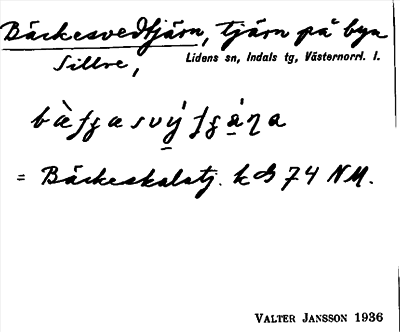 Bäckesvedtjärn, tjärn på byn
Sillre, Lidens sn, Indals tg, Västernorrl. l.
= Bäckeskalstj. k d3 74 NM.
VALTER JANSSON 1936